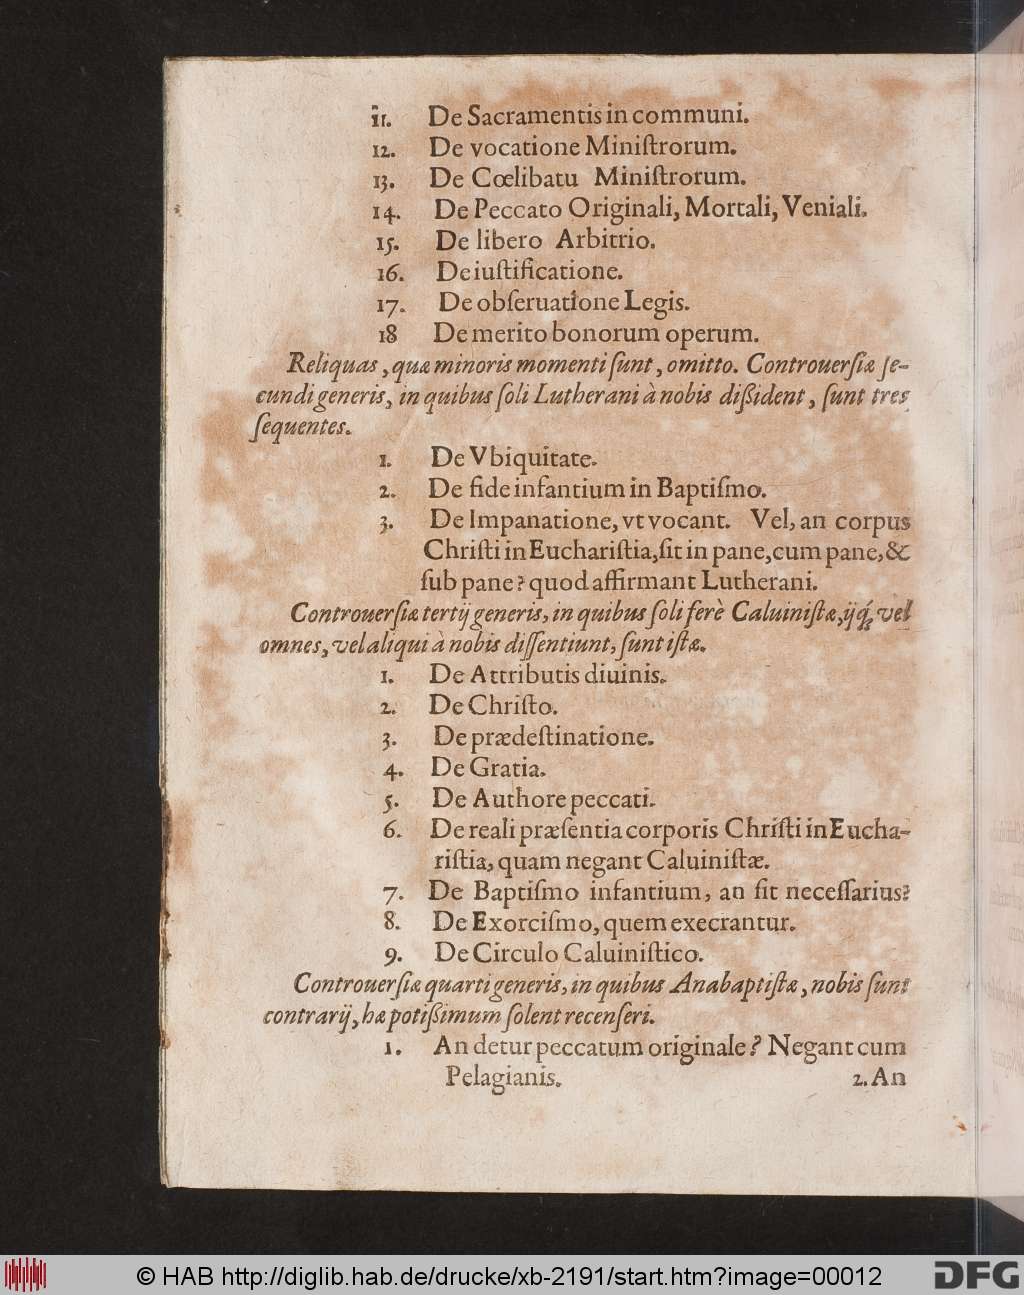 11. De Sacramentis in communi.
12. De vocatione Miniſtrorum.
13. De Cœlibatu Miniſtrorum.
14. De Peccato Originali, Mortali, Veniali.
15. De libero Arbitrio.
16. De iuſtificatione.
17. De obſeruatione Legis.
18 De merito bonorum operum.
Reliquas, quæ minoris momenti ſunt, omitto. Controuerſiæ ſe-
cundi generis, in quibus ſoli Lutherani à nobis dißident, ſunt tres
ſequentes.
1. De Vbiquitate.
2. De fide infantium in Baptiſmo.
3. De Impanatione, vt vocant. Vel, an corpus
Chriſti in Euchariſtia, ſit in pane, cum pane, &
ſub pane? quod affirmant Lutherani.
Controuerſiæ tertij generis, in quibus ſoli ferè Caluiniſtæ, ijq́; vel
omnes, vel aliqui à nobis diſſentiunt, ſunt iſtæ.
1. De Attributis diuinis.
2. De Chriſto.
3. De prædeſtinatione.
4. De Gratia.
5. De Authore peccati.
6. De reali præſentia corporis Chriſti in Eucha-
riſtia, quam negant Caluiniſtæ.
7. De Baptiſmo infantium, an ſit neceſſarius?
8. De Exorciſmo, quem execrantur.
9. De Circulo Caluiniſtico.
Controuerſiæ quarti generis, in quibus Anabaptiſtæ, nobis ſunt
contrarij, hæ potißimum ſolent recenſeri.
1. An detur peccatum originale? Negant cum
Pelagianis. 2. An
© HAB http://diglib.hab.de/drucke/xb-2191/start.htm?image=00012
DFG